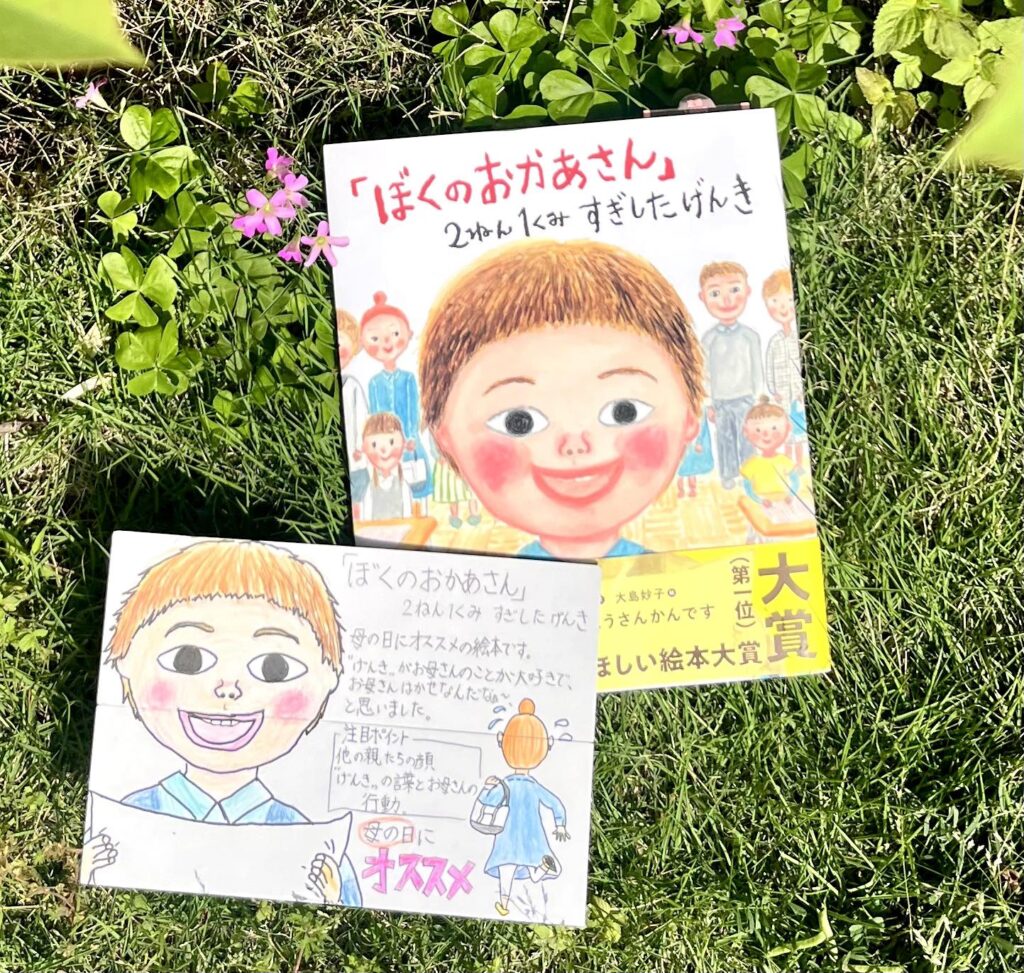 「ぼくのおかあさん」
2ねん1くみ すぎした げんき
大賞
（第一位）
大島妙子
うさんかんです
ほしい絵本大賞
「ぼくのおかあさん」
2ねん1くみ すぎした げんき
母の日にオススメの絵本です。
"げんき"がお母さんのことが大好きで、
お母さんはかせなんだなぁ~
と思いました。
注目ポイント
他の親たちの顔
"げんき"の言葉とお母さんの
行動
母の日に
オススメ